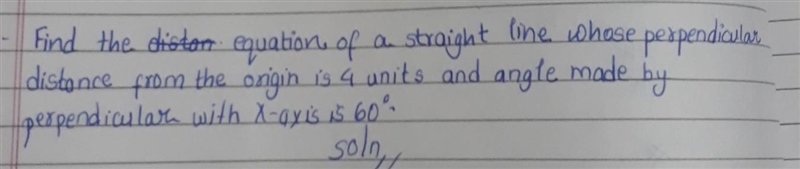 - Find the distan. equation of a straight line whose perpendicular
distance from the origin is 4 units and angle made by
perpendicular with X-axis is 60°.
soln,,